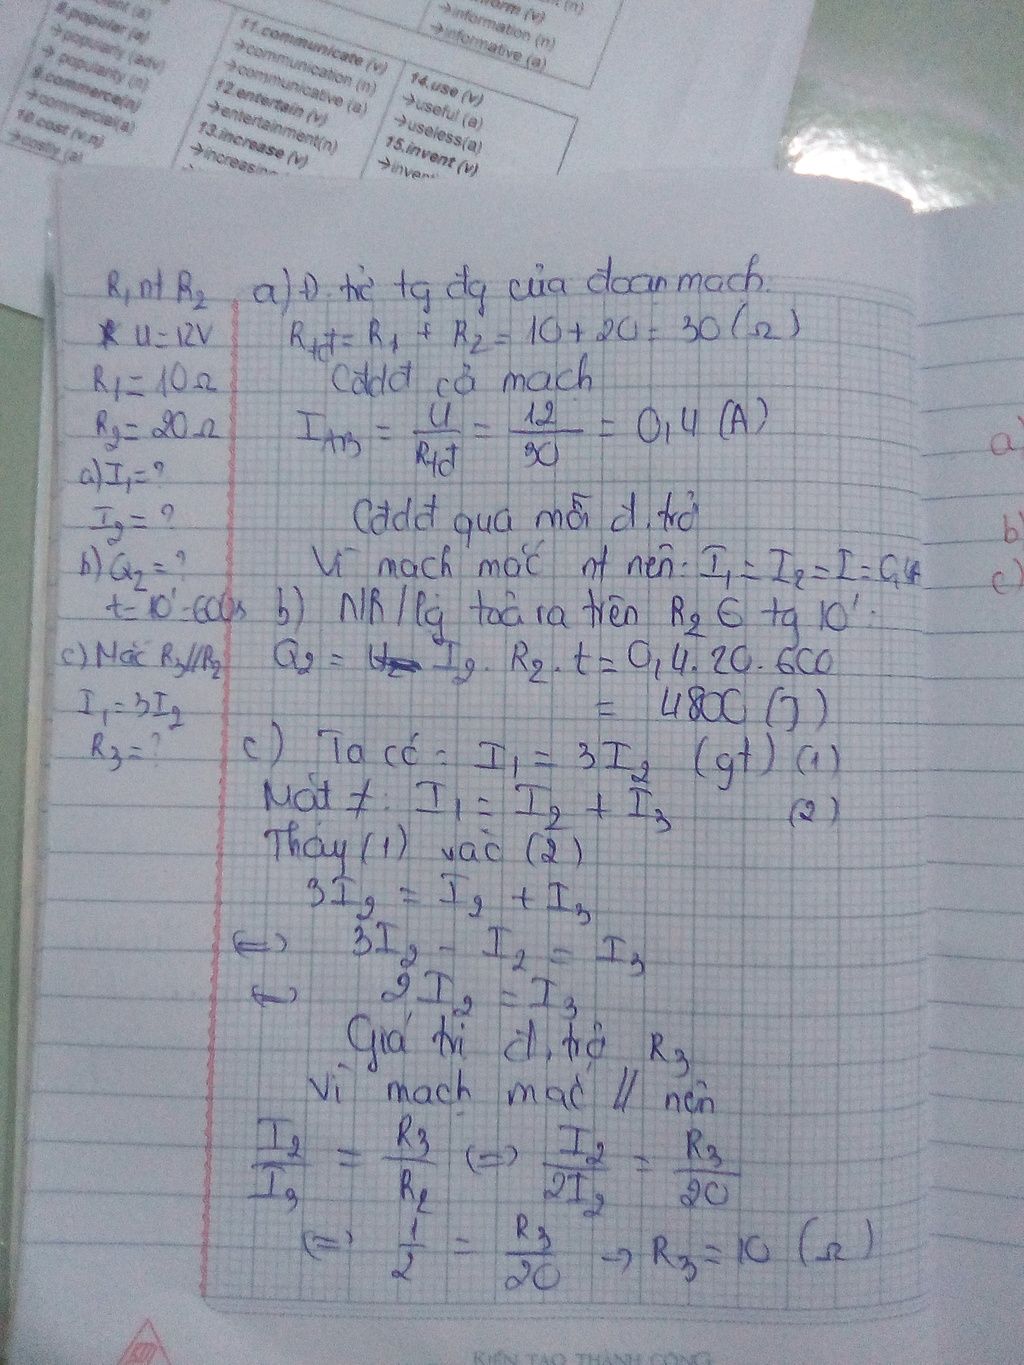 8.popular (a)
→popularly (adv)
→ popularity (n)
9.commerce(n)
→commercial(a)
10.cost (v.n)
→costly (a)
11.communicate (v)
→communication (n)
→communicative (a)
12.entertain (v)
→entertainment(n)
13.increase (v)
→increasin
→information (n)
→informative (a)
14.use (v)
→useful (a)
→useless(a)
15.invent (v)
→inven
R₁ nt R₂
U = 12V
R₁ = 10Ω
R₂ = 20Ω
a) I₁ = ?
I₂ = ?
b) Q₂ = ?
t = 10' = 600s
c) Mắc R₃//R₂
I₁ = 3I₂
R₃ = ?
a) Đ. trở tg đg của đoạn mạch:
Rtđ = R₁ + R₂ = 10 + 20 = 30 (Ω)
Cđdđ cả mạch
I_AB = U/Rtđ = 12/30 = 0,4 (A)
Cđdđ qua mỗi đ. trở
Vì mạch mắc nt nên: I₁ = I₂ = I = 0,4A
b) Nh/lg toả ra trên R₂ 6 tg 10':
Q₂ = I₂. R₂. t = 0,4. 20. 600
= 4800 (J)
c) Ta có: I₁ = 3I₂ (gt) (1)
Mặt ≠: I₁ = I₂ + I₃ (2)
Thay (1) vào (2)
3I₂ = I₂ + I₃
⇔ 3I₂ - I₂ = I₃
⇔ 2I₂ = I₃
Giá trị đ. trở R₃
Vì mạch mắc // nên
I₂/I₃ = R₃/R₂ ⇔ I₂/2I₂ = R₃/20
⇔ 1/2 = R₃/20 → R₃ = 10 (Ω)
a)
b)
c)
KIẾN TẠO THÀNH CÔNG